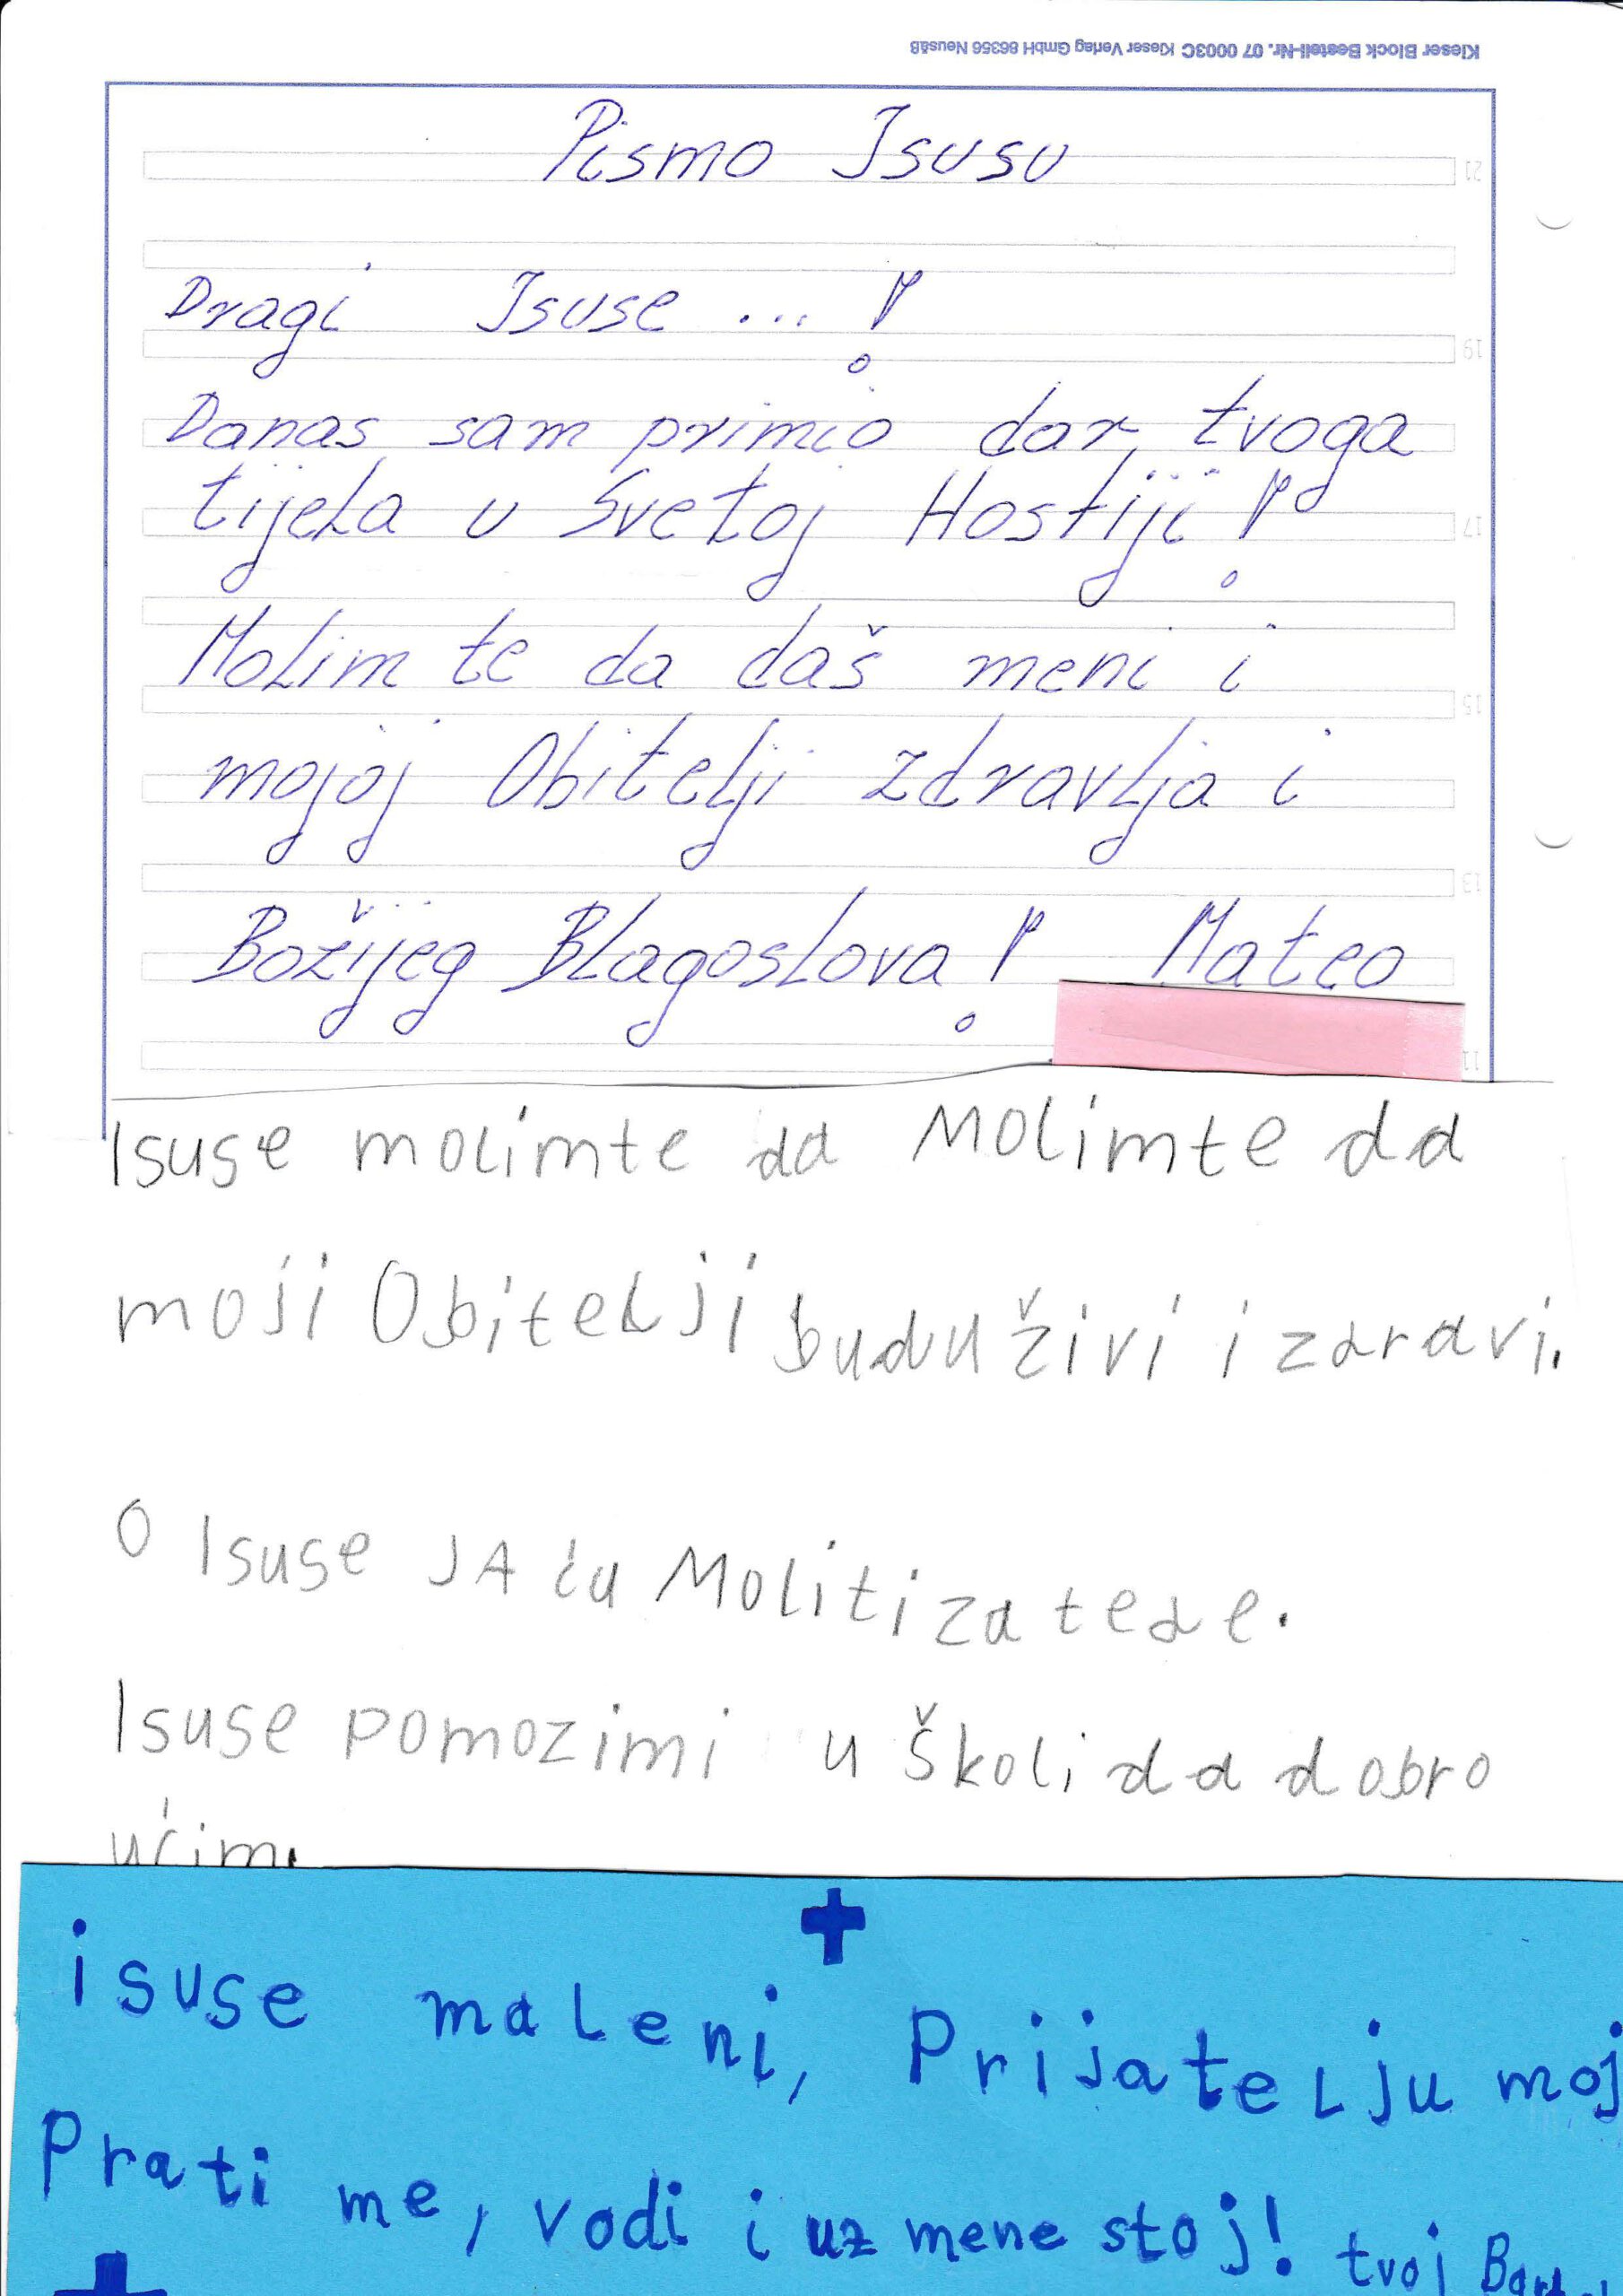 Kieser Block Bestell-Nr. 07 0003C Kieser Verlag GmbH 86356 Neusäß
Pismo Isusu
21
Dragi Isuse ... !
19
Danas sam primio dar tvoga
tijela u Svetoj Hostiji !
17
Molim te da daš meni i
15
mojoj Obitelji zdravlja i
13
Božijeg Blagoslova ! Mateo
11
Isuse molimte da Molimte da
moji Obitelji budu živi i zdravi.
O Isuse JA ću Moliti za tebe.
Isuse pomozimi u školi da dobro
učim.
isuse maleni, Prijatelju moj
Prati me, vodi i uz mene stoj! tvoj